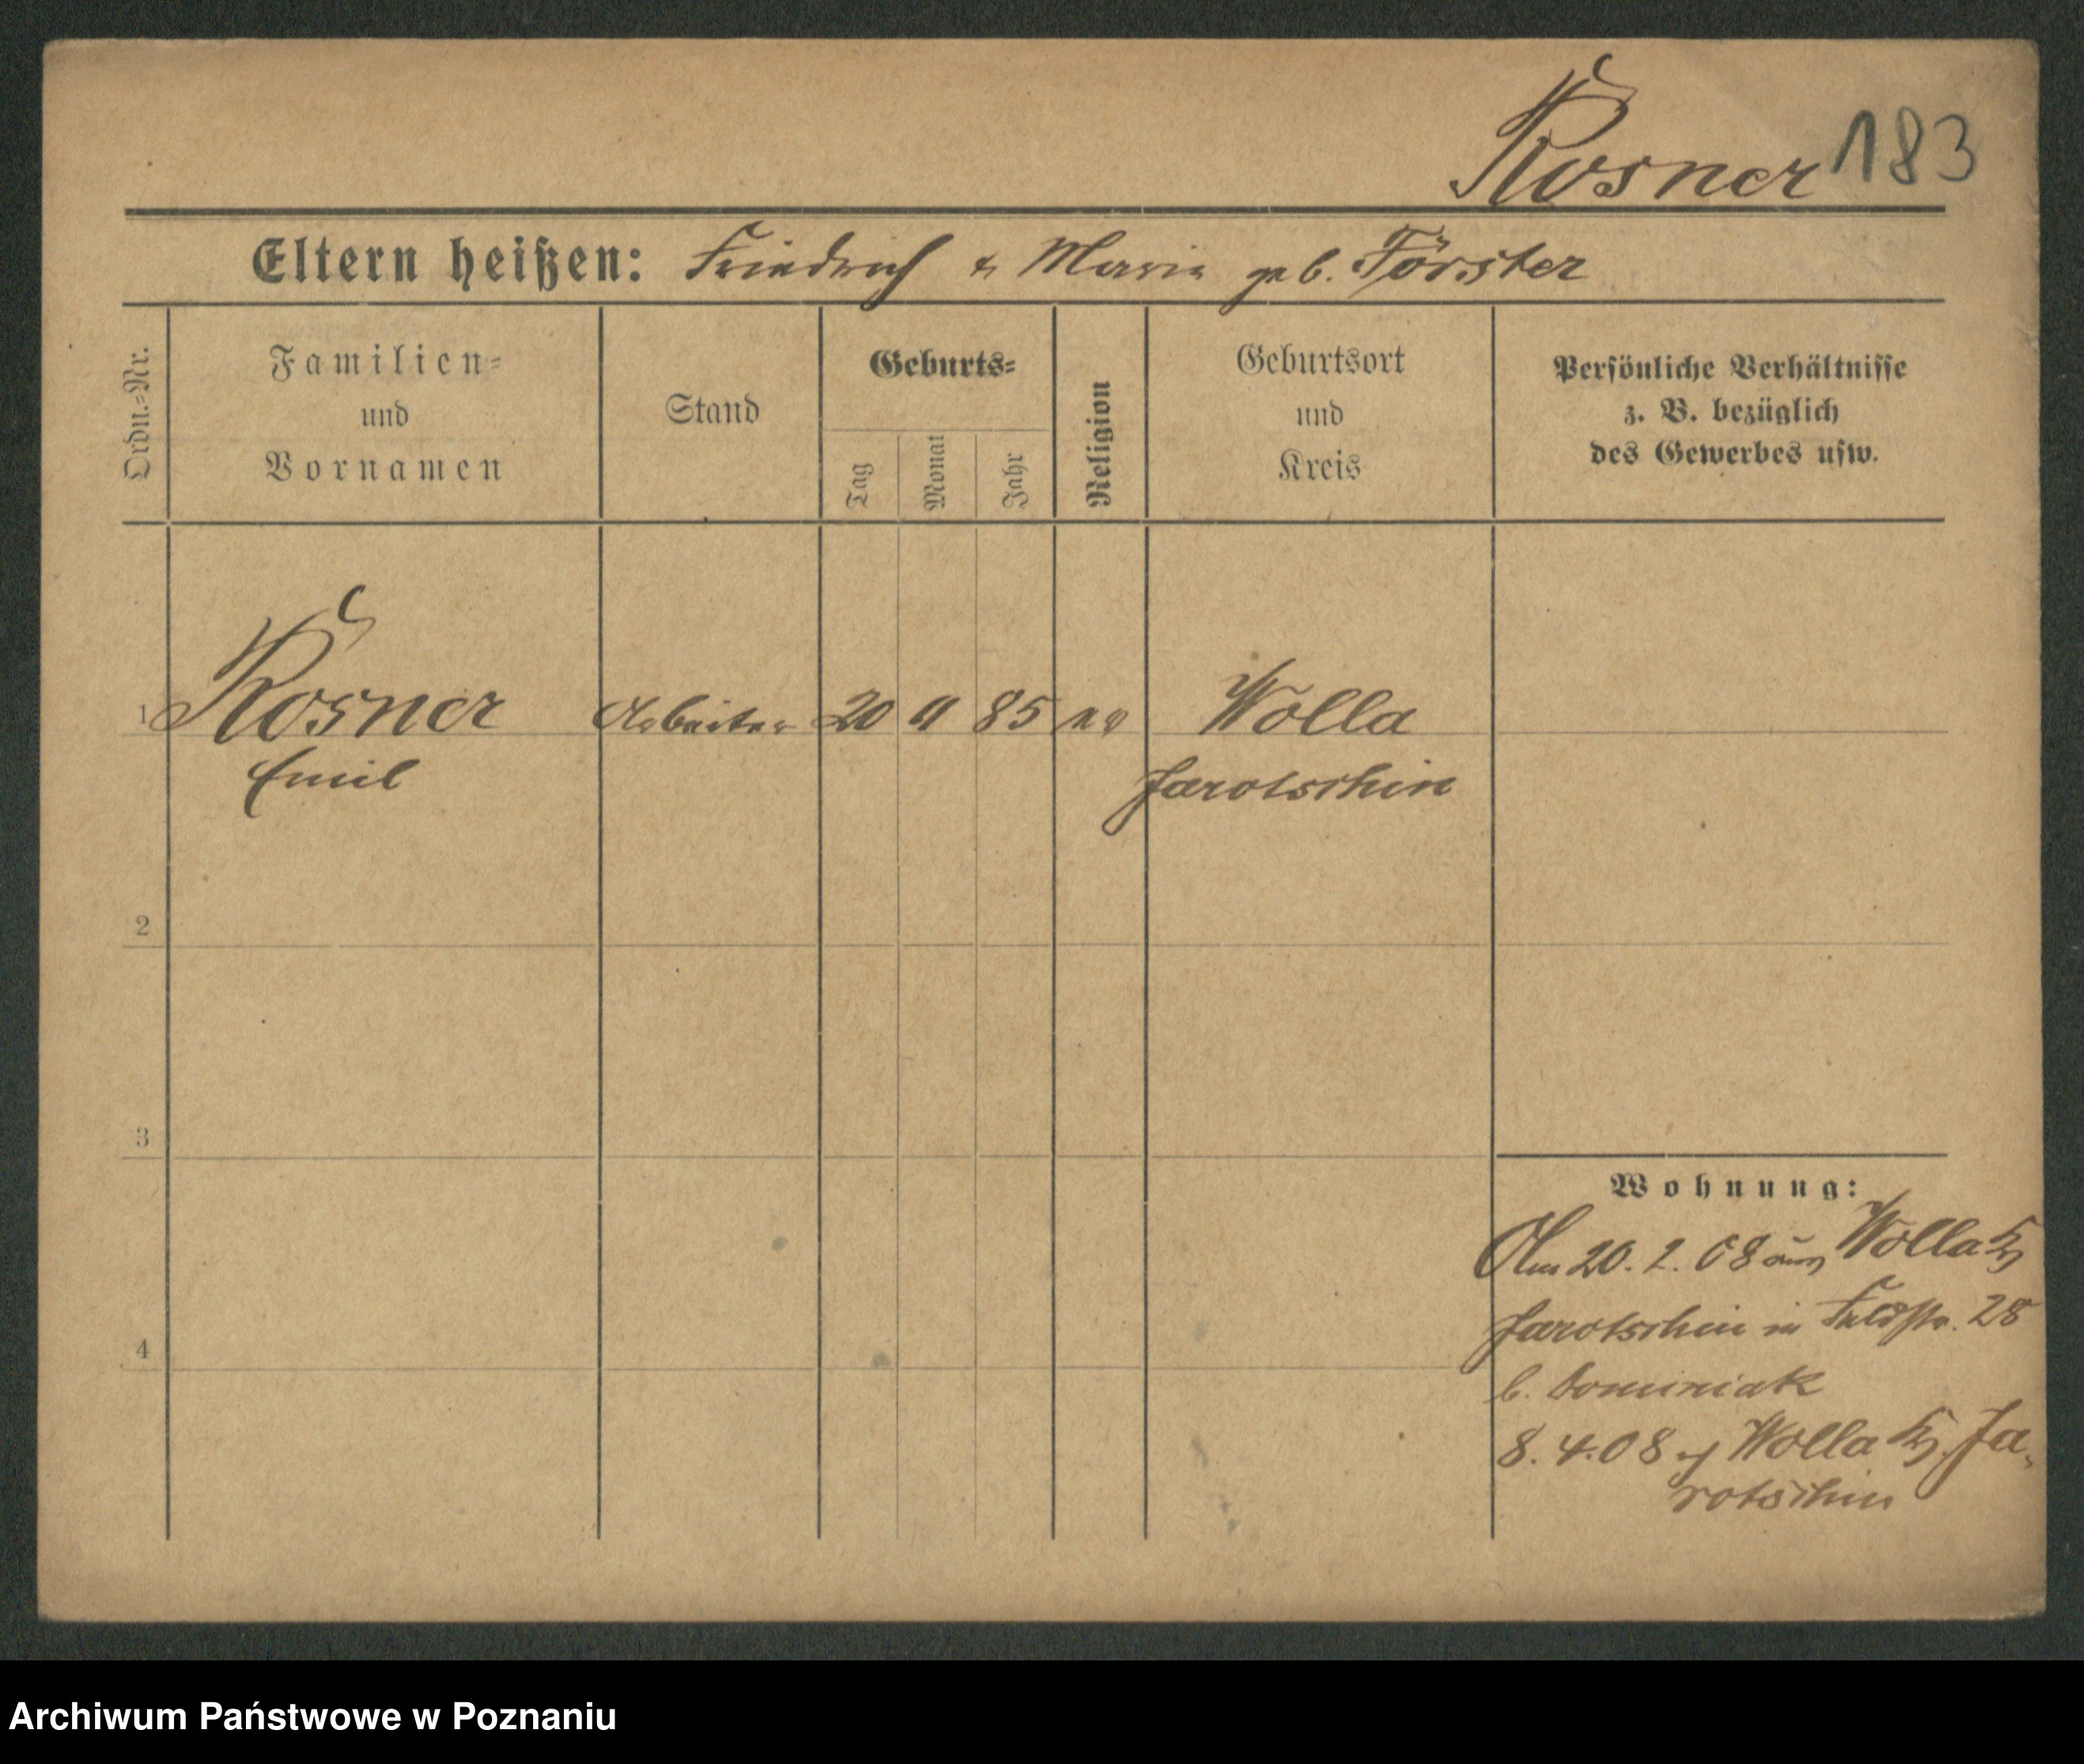 Rosner 183
Eltern heißen: Friedrich & Maria geb. Förster
Ordn.-Nr.
Familien-
und
Vornamen
Stand
Geburts-
Tag
Monat
Jahr
Religion
Geburtsort
und
Kreis
Persönliche Verhältnisse
z. B. bezüglich
des Gewerbes usw.
1 Rosner Arbeiter 20 85 ev Wolla
Emil Jarotschin
2
3
4
Wohnung:
Am 20. 2. 08 aus Wolla
Jarotschin in Feldstr. 28
b. Dominiak
8. 4. 08 Wolla Ja-
rotschin
Archiwum Państwowe w Poznaniu